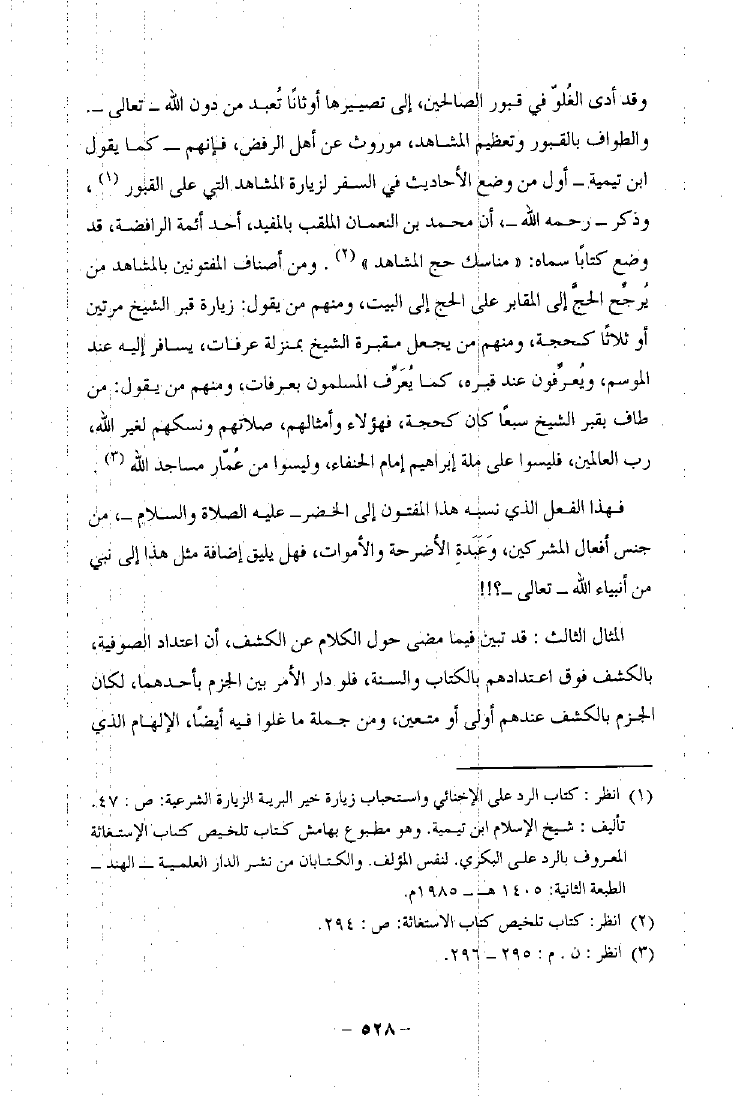 وقد أدى الغُلوّ في قبور الصالحين، إلى تصييرها أوثانًا تُعبد من دون الله ــ تعالى ــ.
والطواف بالقبور وتعظيم المشاهد، موروث عن أهل الرفض، فإنهم ــ كما يقول
ابن تيمية ــ أول من وضع الأحاديث في السفر لزيارة المشاهد التي على القبور (١) ،
وذكر ــ رحمه الله ــ، أن محمد بن النعمان الملقب بالمفيد، أحد أئمة الرافضة، قد
وضع كتابًا سماه: « مناسك حج المشاهد » (٢) . ومن أصناف المفتونين بالمشاهد من
يُرجِّح الحجَّ إلى المقابر على الحج إلى البيت، ومنهم من يقول: زيارة قبر الشيخ مرتين
أو ثلاثًا كحجة، ومنهم من يجعل مقبرة الشيخ بمنزلة عرفات، يسافر إليه عند
الموسم، ويُعرِّفون عند قبره، كما يُعَرِّف المسلمون بعرفات، ومنهم من يقول: من
طاف بقبر الشيخ سبعًا كان كحجة، فهؤلاء وأمثالهم، صلاتهم ونسكهم لغير الله،
رب العالمين، فليسوا على ملة إبراهيم إمام الحنفاء، وليسوا من عُمّار مساجد الله (٣) .
فهذا الفعل الذي نسبه هذا المفتون إلى الخضر ــ عليه الصلاة والسلام ــ، من
جنس أفعال المشركين، وَعَبَدةِ الأضرحة والأموات، فهل يليق إضافة مثل هذا إلى نبي
من أنبياء الله ــ تعالى ــ؟!!!
المثال الثالث : قد تبين فيما مضى حول الكلام عن الكشف، أن اعتداد الصوفية،
بالكشف فوق اعتدادهم بالكتاب والسنة، فلو دار الأمر بين الجزم بأحدهما، لكان
الجزم بالكشف عندهم أولى أو متعين، ومن جملة ما غلوا فيه أيضًا، الإلهام الذي
(١) انظر : كتاب الرد على الإخنائي واستحباب زيارة خير البرية الزيارة الشرعية: ص : ٤٧.
تأليف : شيخ الإسلام ابن تيمية. وهو مطبوع بهامش كتاب تلخيص كتاب الإستغاثة
المعروف بالرد على البكري. لنفس المؤلف. والكتابان من نشر الدار العلمية ــ الهند ــ
الطبعة الثانية: ١٤٠٥ هـ ــ ١٩٨٥م.
(٢) انظر: كتاب تلخيص كتاب الاستغاثة: ص : ٢٩٤.
(٣) انظر : ن . م : ٢٩٥ ــ ٢٩٦.
- ٥٢٨ -